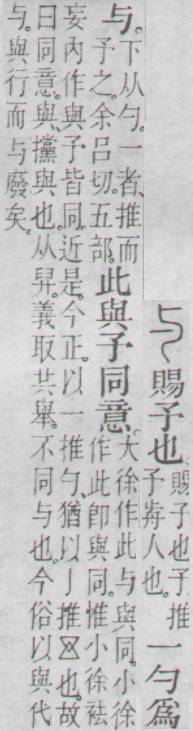 与賜予也賜予也予推
予歬人也。一勺爲
与。下从勺。一者、推而
予之。余呂切。五部。此與予同意、大徐作此与與同。小徐
作此卽與同。惟小徐袪
妄內作與予皆同。近是。今正。以一推勺、猶以亅推⧖也。故
曰同意。與、攩與也。从舁。義取共舉。不同与也。今俗以與代
与。與行而与廢矣。